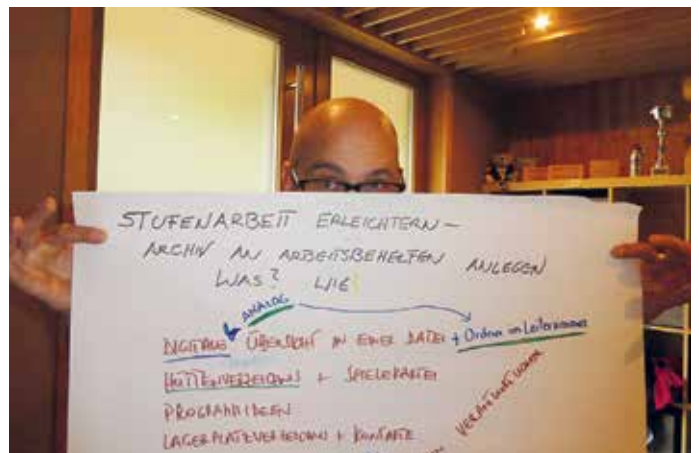 STUFENARBEIT ERLEICHTERN –
ARCHIV AN ARBEITSBEHELFEN ANLEGEN
WAS? WIE?
ANALOG
DIGITALE ÜBERSICHT IN EINER DATEI + Ordner im Leiterzimmer
HÜTTENVERZEICHNIS + SPIELEKARTEI
PROGRAMMIDEEN
LAGERPLATZVERZEICHNIS + KONTAKTE